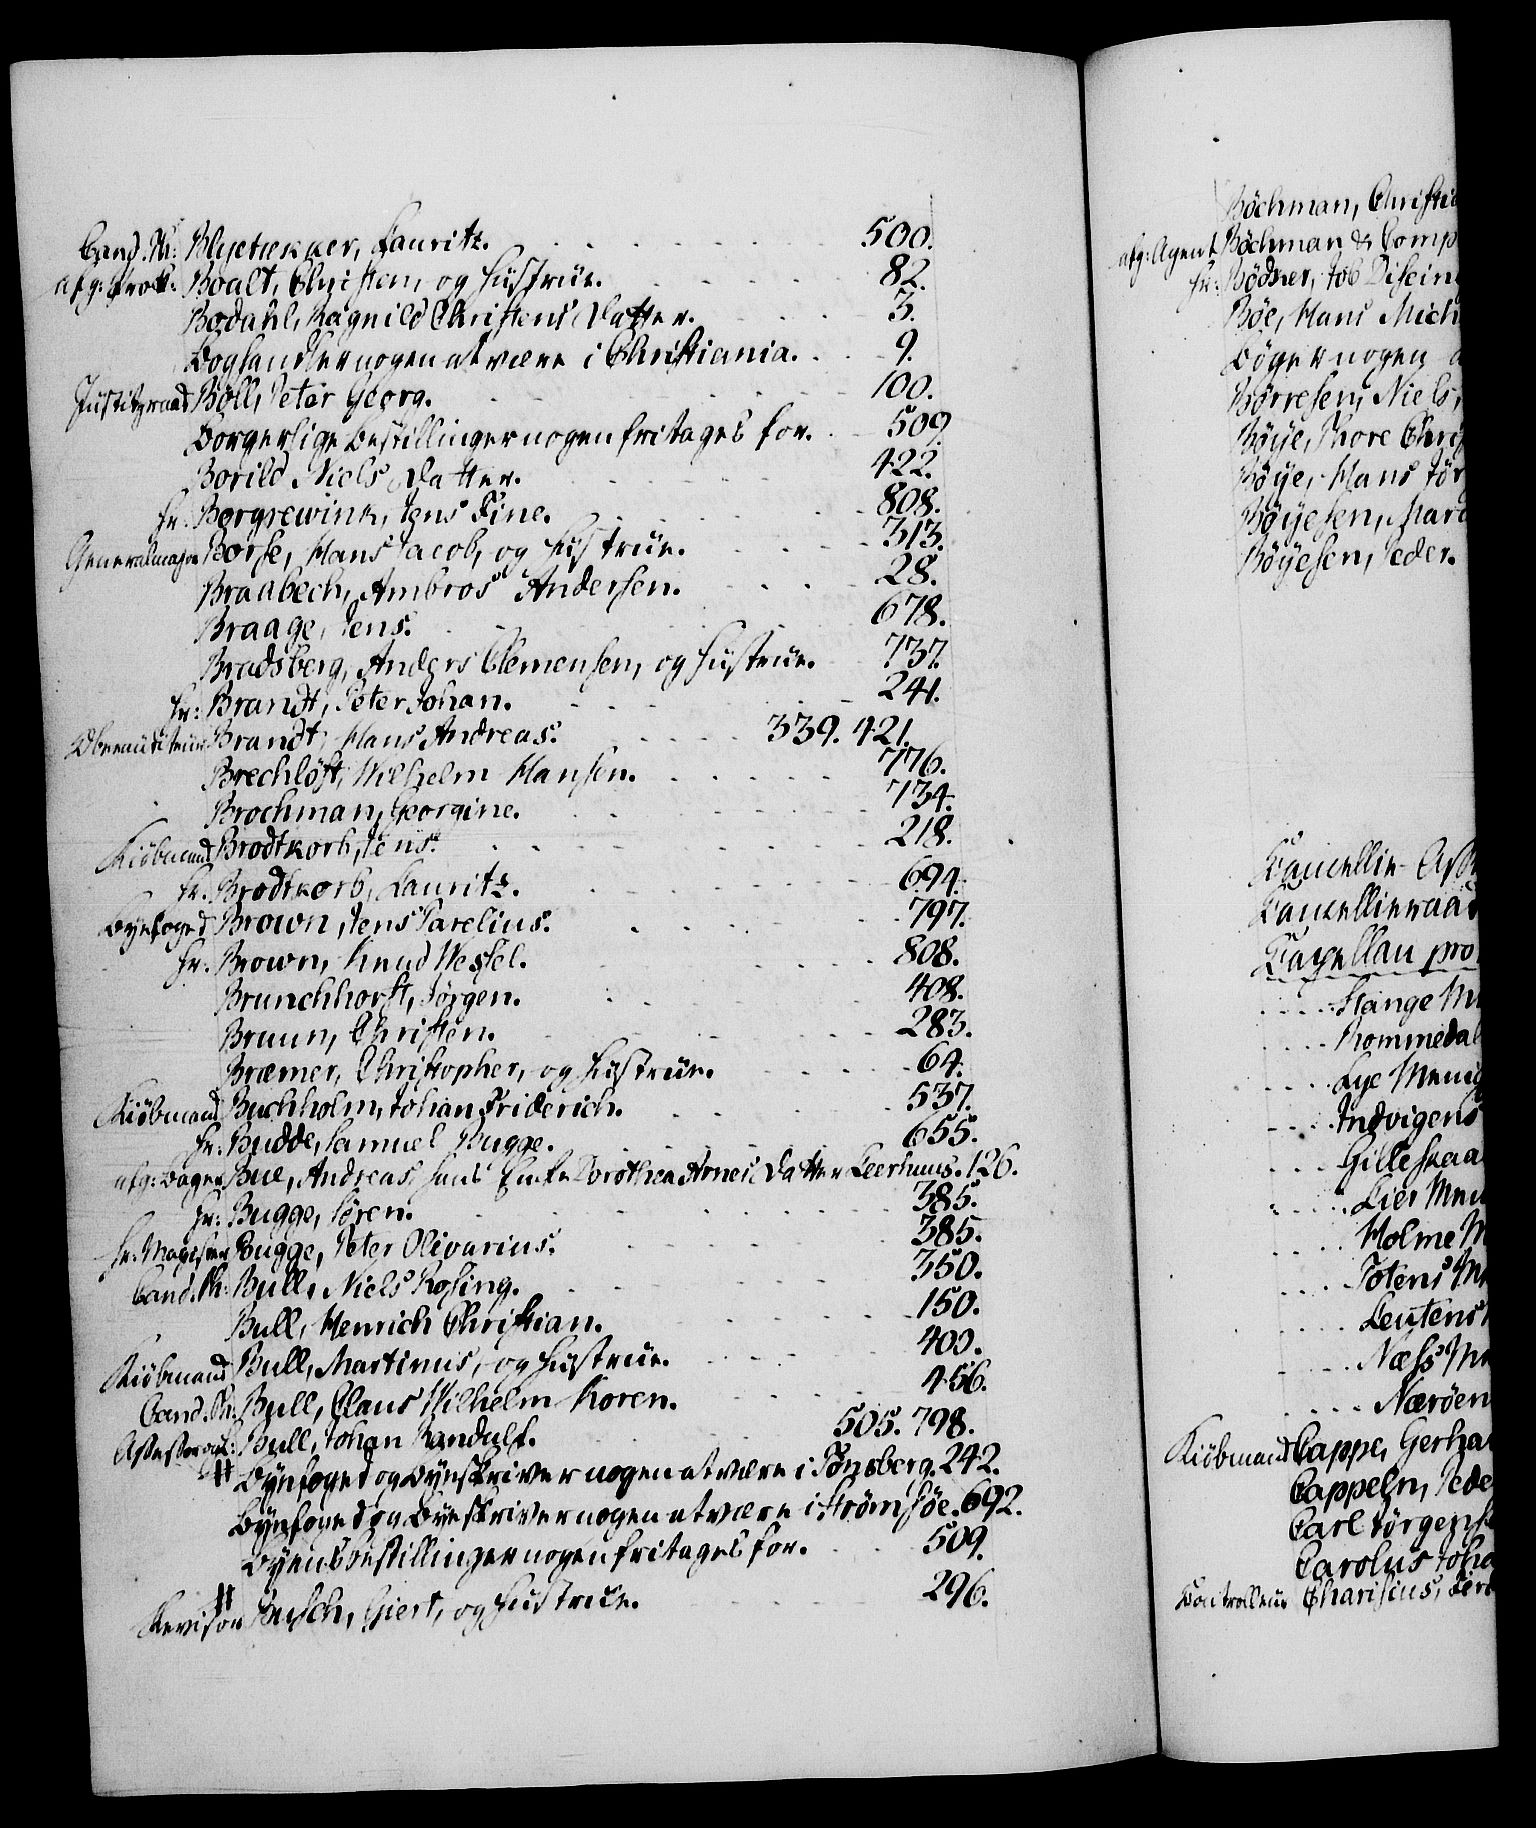 Cand. Ph: Blyetækker, Lauritz. 500.
afg: Boalt, Christen, og Hustrue. 82.
Bodahl, Ragnild Christens Datter. 3.
Boghandler nogen at være i Christiania. 9.
Justitzraad Böll, Peter Georg. 100.
Borgerlige Bestillinger nogen fritages for. 509.
Borild Niels Datter. 422.
Hr. Borgrewink, Jens Fine. 808.
Generalmajor Borse, Hans Jacob, og Hustrue. 313.
Braabech, Ambros Andersen. 28.
Braage, Jens. 678.
Bradsberg, Anders Clemensen, og Hustrue. 737.
Hr: Brandt, Peter Johan. 241.
Oberauditeur Brandt, Hans Andreas. 339. 421.
Brechlöft, Wilhelm Hansen. 776.
Brochman, Georgine. 734.
Kiöbmand Brodtkorb, Jens. 218.
Hr. Brodtkorb, Lauritz. 694.
Byefoged Brown, Jens Parelius. 797.
Hr. Brown, Knud Wessel. 808.
Brunchhorst, Jörgen. 408.
Bruun, Christen. 283.
Bræmer, Christopher, og Hustrue. 64.
Kiöbmand Buchholm, Johan Friderich. 537.
Hr: Budde, Samuel Bugge. 655.
afg: Bager Bue, Andreas hans Enke Dorothea Arnes Datter Leerhuus. 126.
Hr: Bugge, Sören. 385.
Hr. Magister Bugge, Peter Olivarius. 385.
Cand. Ph: Bull, Niels Rosing. 350.
Bull, Henrich Christian. 150.
Kiöbmand Bull, Martinus, og Hustrue. 400.
Cand. Ph: Bull, Claus Wilhelm Koren. 456.
Assessor Bull, Johan Randulf. 505. 798.
# Byefoged og Byeskriver nogen at være i Tönsberg. 242.
Byefoged og Byeskriver nogen at være i Strömsöe. 692.
Byens Bestillinger nogen fritages for. 509.
#
Revisor Busch, Giert, og Hustrue. 296.
Böchman, Christia
afg: Agent Böchman & Comp
Hr: Bödker, Job
Böe, Hans Mich
Böger nogen
Börresen, Niels,
Böye, Thore Chri
Böye, Hans Jör
Böyesen, Mar
Böyesen, Peder.
Cancellie-Ass
Cancellieraad
Capellan pro
Stange Me
Rommedal
Lye Menig
Indvigens
Gilleskaa
Lier Men
Holme M
Totens Me
Leutens
Næss Me
Nærøen
Kiöbmand Cappe, Gerha
Cappeln, Pede
Carl Jörgens
Carolus Joha
Controlleur Charisius, Ferd